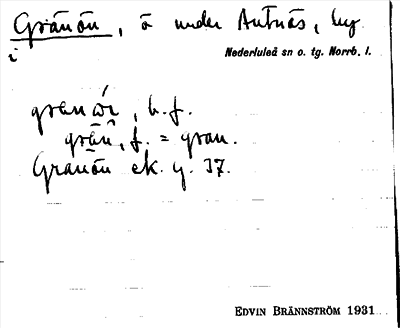 Granön, ö under Antnäs, by
i Nederluleå sn o. tg. Norrb. l.
b. f.
f. = gran.
Granön ek. y. 37.
EDVIN BRÄNNSTRÖM 1931